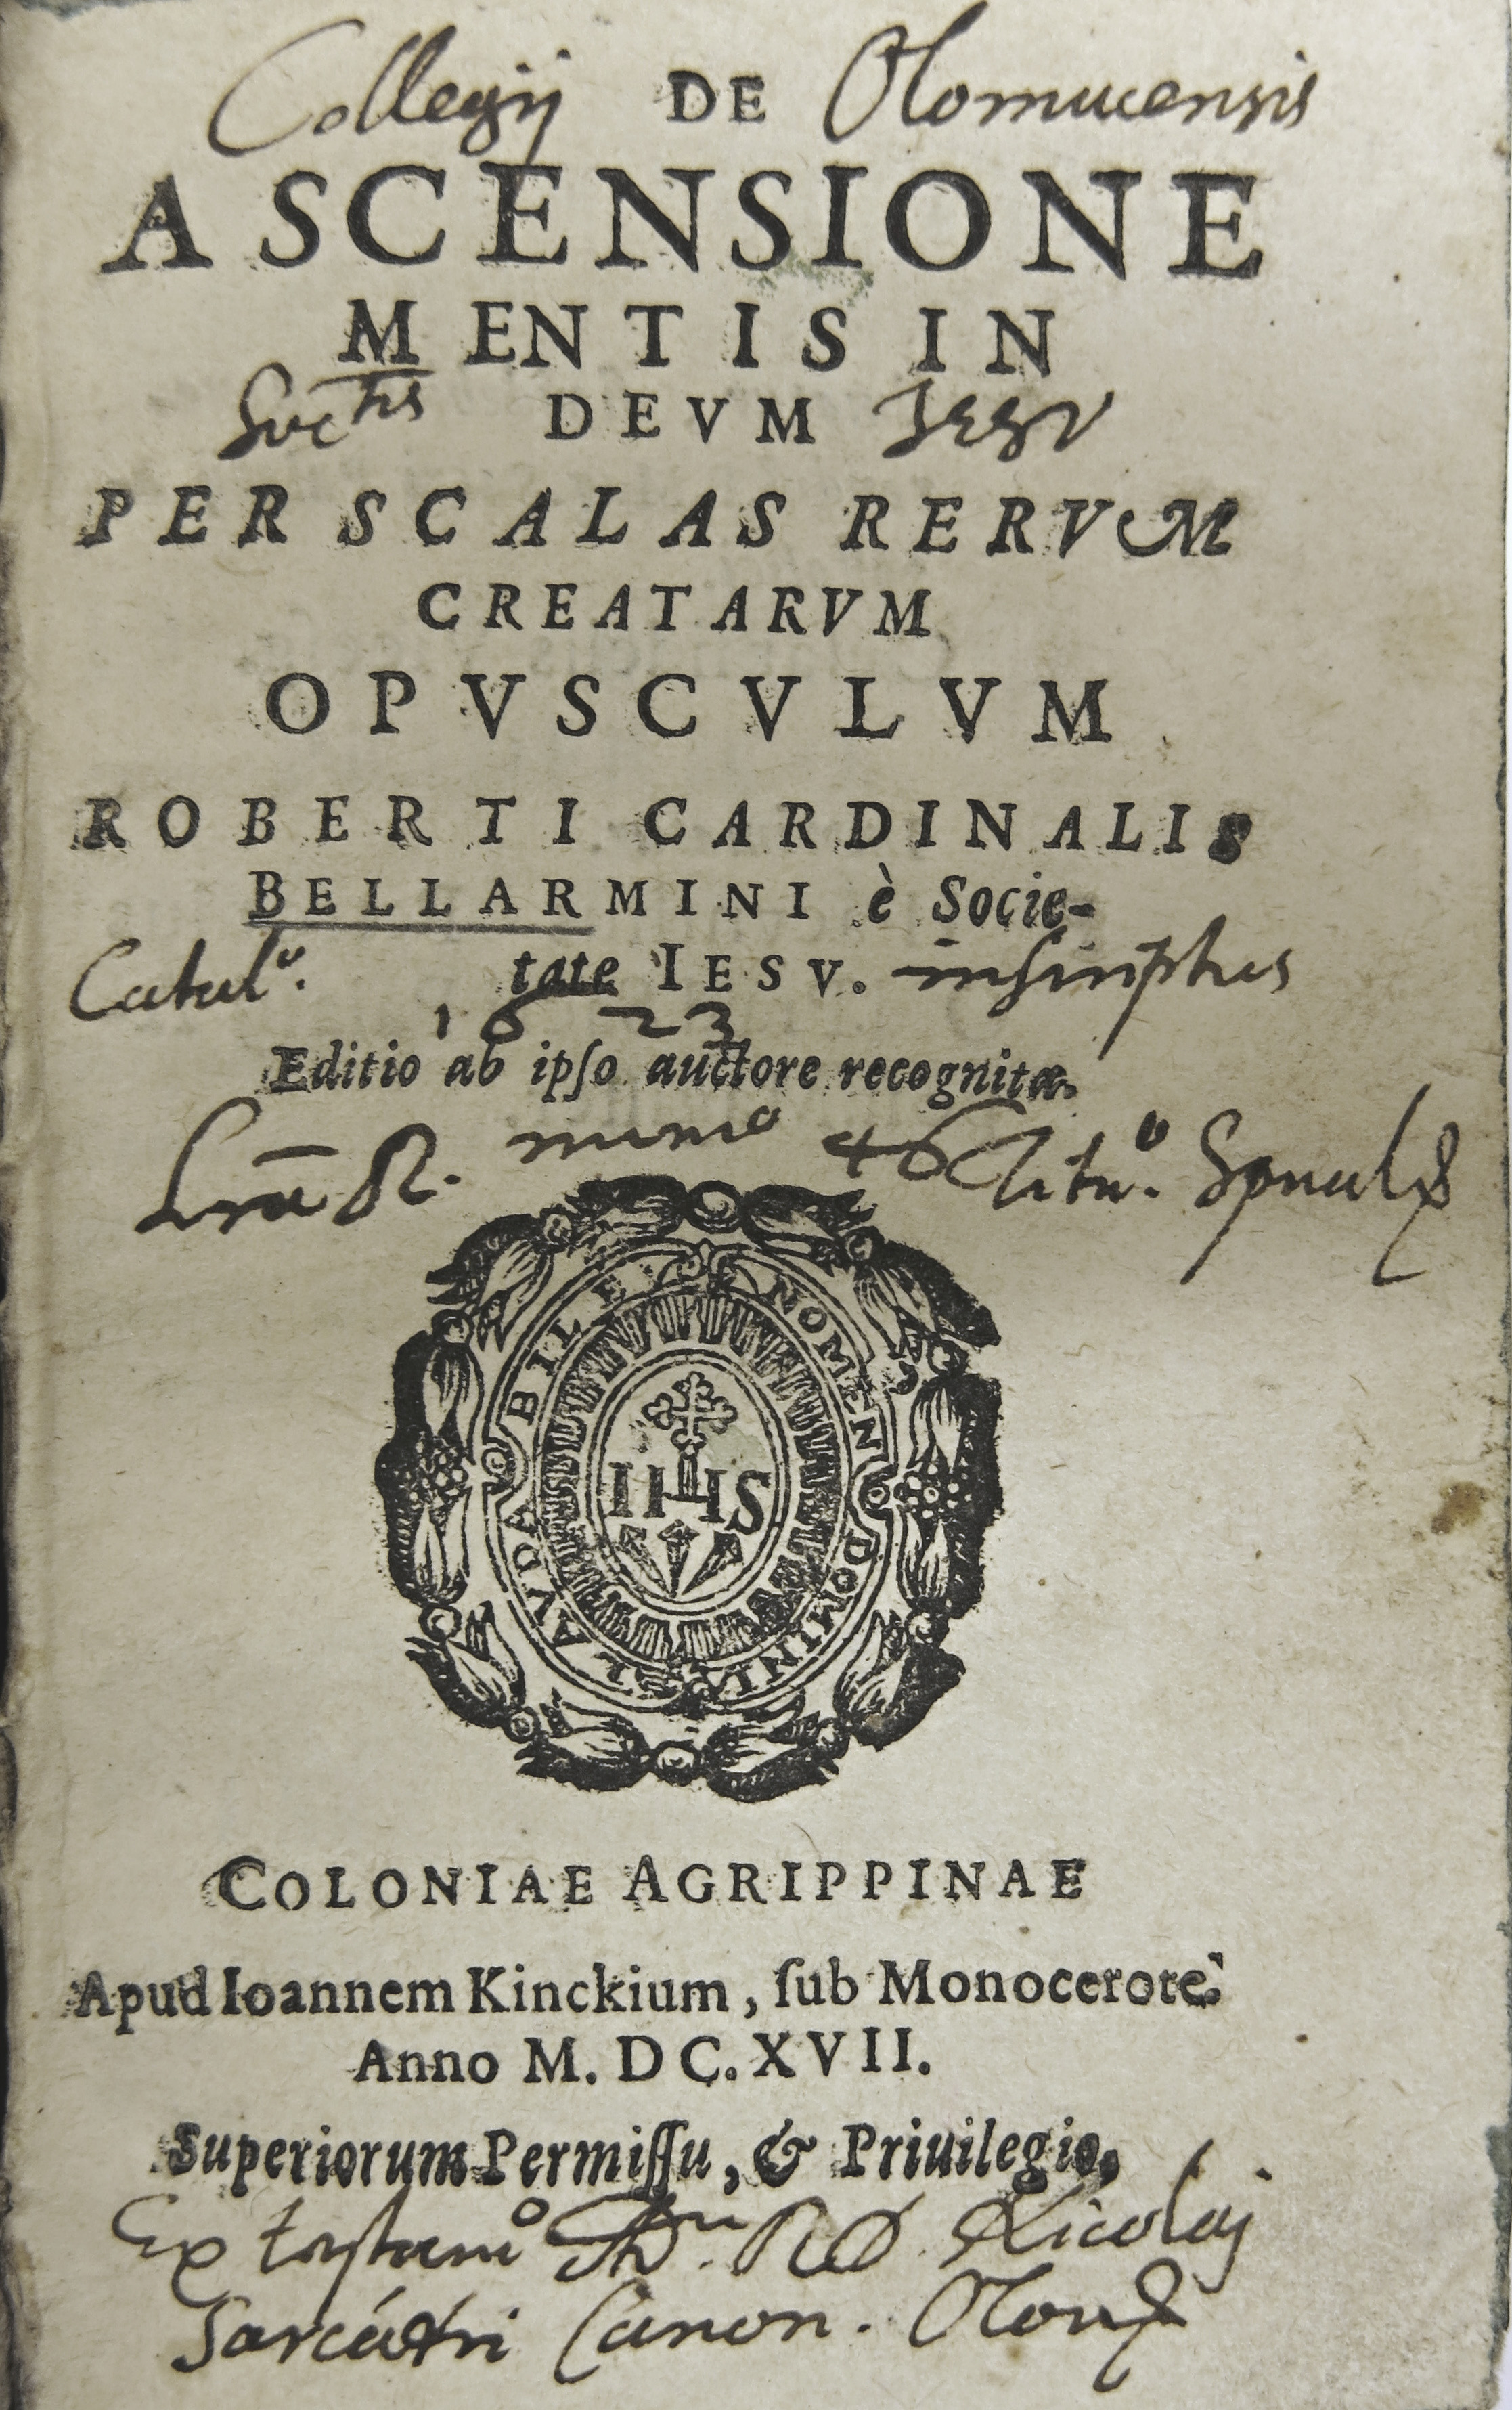 Collegij DE Olomucensis
ASCENSIONE
MENTIS IN
Soctis DEVM Jesu
PER SCALAS RERVM
CREATARVM
OPVSCVLVM
ROBERTI CARDINALIS
BELLARMINI è Socie-
Catalo. tate IESV. inscriptus
1623
Editio ab ipſo auctore recognita.
Lrā R. numo 46 Titu.o
LAVDABILE NOMEN DOMINI
IHS
COLONIAE AGRIPPINAE
Apud Ioannem Kinckium, ſub Monocerote.
Anno M. DC. XVII.
Superiorum Permiſſu, & Priuilegio,
Ex testamo RD Nicolai
Sarcandri Canon.